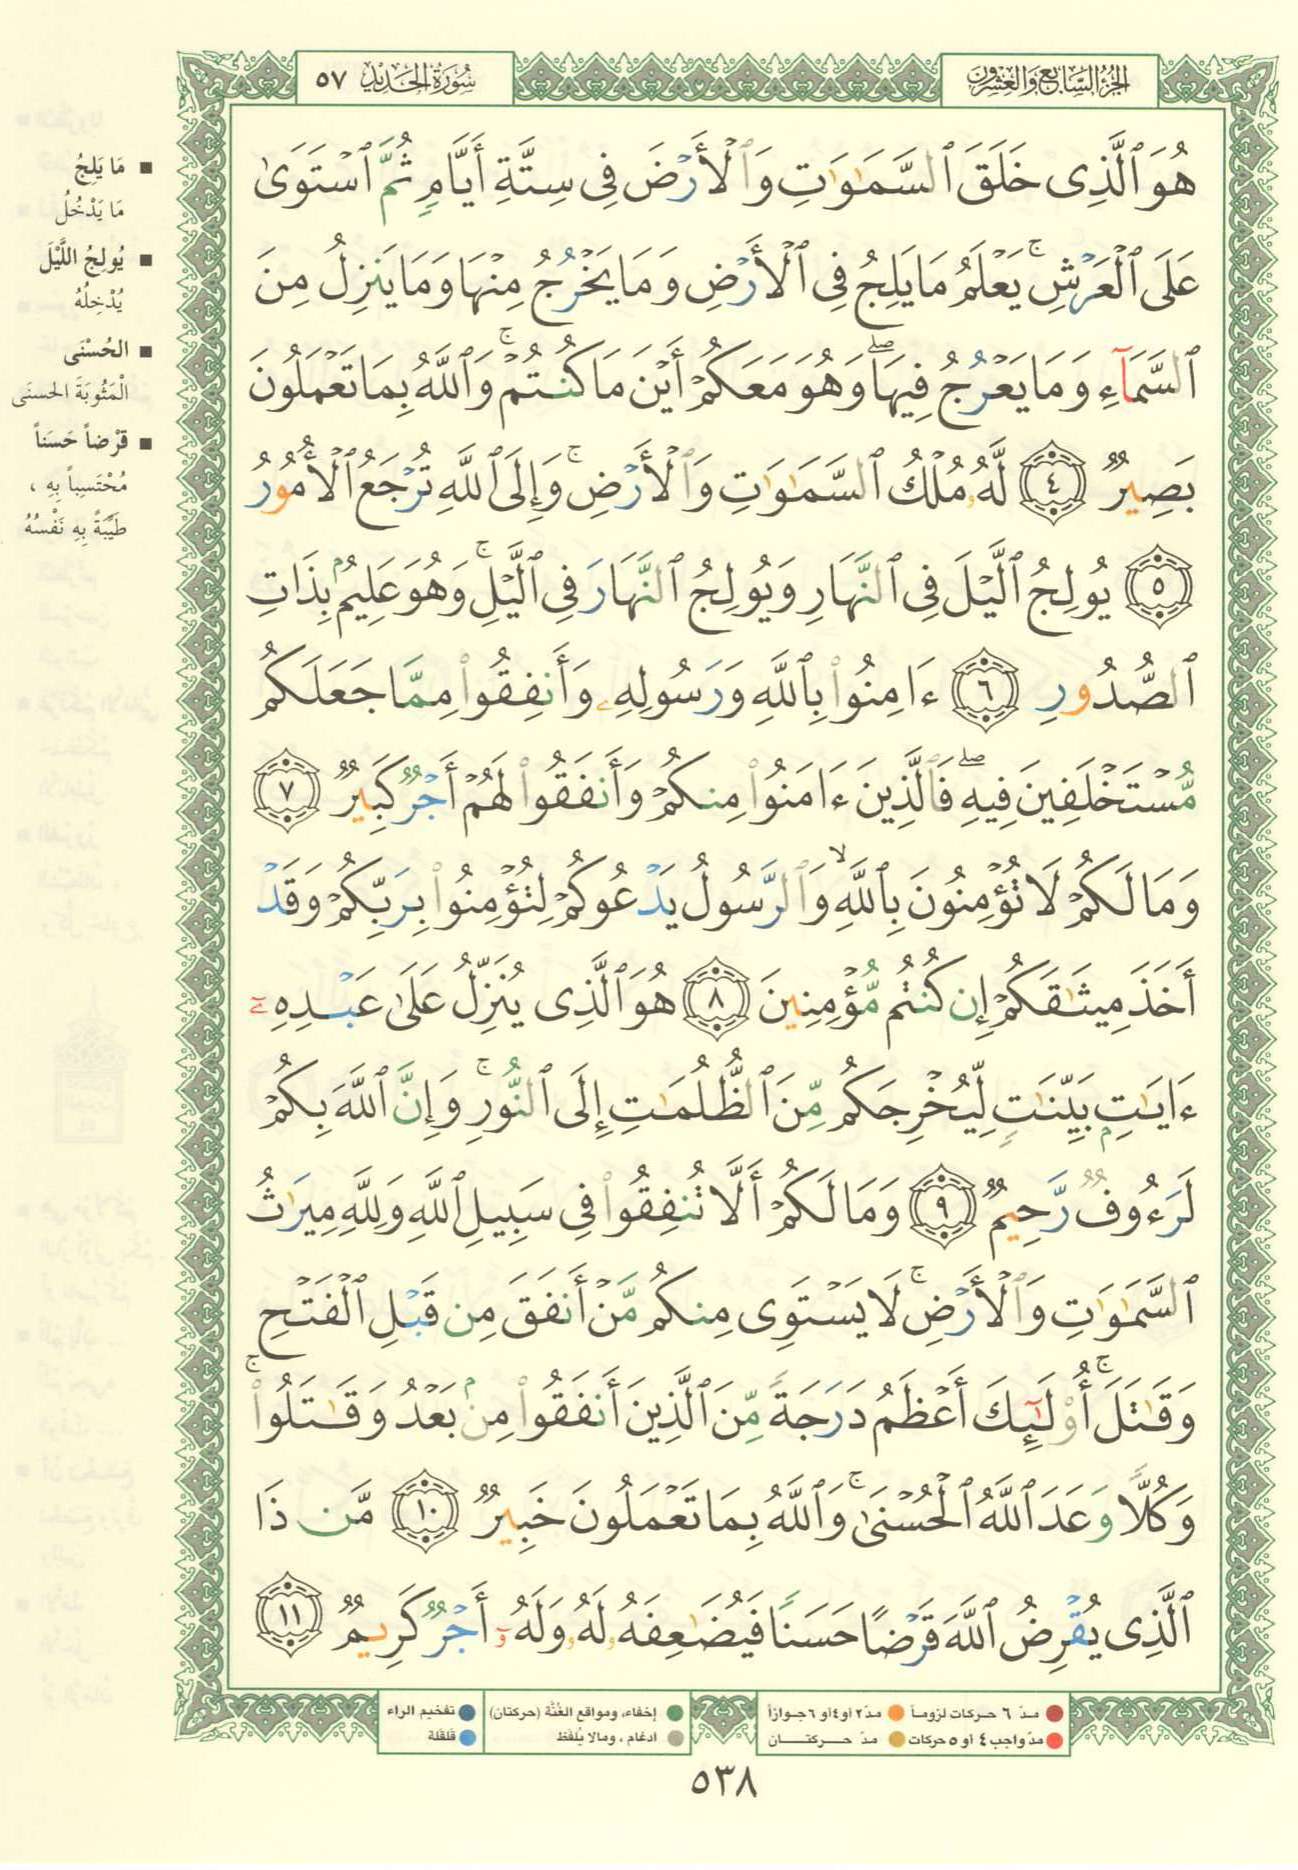 الجزء السابع والعشرون
سورة الحديد ٥٧
هُوَ ٱلَّذِى خَلَقَ ٱلسَّمَٰوَٰتِ وَٱلْأَرْضَ فِى سِتَّةِ أَيَّامٍ ثُمَّ ٱسْتَوَىٰ
عَلَى ٱلْعَرْشِ ۚ يَعْلَمُ مَا يَلِجُ فِى ٱلْأَرْضِ وَمَا يَخْرُجُ مِنْهَا وَمَا يَنزِلُ مِنَ
ٱلسَّمَآءِ وَمَا يَعْرُجُ فِيهَا ۖ وَهُوَ مَعَكُمْ أَيْنَ مَا كُنتُمْ ۚ وَٱللَّهُ بِمَا تَعْمَلُونَ
بَصِيرٌ ٤ لَّهُۥ مُلْكُ ٱلسَّمَٰوَٰتِ وَٱلْأَرْضِ ۚ وَإِلَى ٱللَّهِ تُرْجَعُ ٱلْأُمُورُ
٥ يُولِجُ ٱلَّيْلَ فِى ٱلنَّهَارِ وَيُولِجُ ٱلنَّهَارَ فِى ٱلَّيْلِ ۚ وَهُوَ عَلِيمٌۢ بِذَاتِ
ٱلصُّدُورِ ٦ ءَامِنُوا۟ بِٱللَّهِ وَرَسُولِهِۦ وَأَنفِقُوا۟ مِمَّا جَعَلَكُم
مُّسْتَخْلَفِينَ فِيهِ ۖ فَٱلَّذِينَ ءَامَنُوا۟ مِنكُمْ وَأَنفَقُوا۟ لَهُمْ أَجْرٌ كَبِيرٌ ٧
وَمَا لَكُمْ لَا تُؤْمِنُونَ بِٱللَّهِ ۙ وَٱلرَّسُولُ يَدْعُوكُمْ لِتُؤْمِنُوا۟ بِرَبِّكُمْ وَقَدْ
أَخَذَ مِيثَٰقَكُمْ إِن كُنتُم مُّؤْمِنِينَ ٨ هُوَ ٱلَّذِى يُنَزِّلُ عَلَىٰ عَبْدِهِۦٓ
ءَايَٰتٍۭ بَيِّنَٰتٍ لِّيُخْرِجَكُم مِّنَ ٱلظُّلُمَٰتِ إِلَى ٱلنُّورِ ۚ وَإِنَّ ٱللَّهَ بِكُمْ
لَرَءُوفٌ رَّحِيمٌ ٩ وَمَا لَكُمْ أَلَّا تُنفِقُوا۟ فِى سَبِيلِ ٱللَّهِ وَلِلَّهِ مِيرَٰثُ
ٱلسَّمَٰوَٰتِ وَٱلْأَرْضِ ۚ لَا يَسْتَوِى مِنكُم مَّنْ أَنفَقَ مِن قَبْلِ ٱلْفَتْحِ
وَقَٰتَلَ ۚ أُو۟لَٰٓئِكَ أَعْظَمُ دَرَجَةً مِّنَ ٱلَّذِينَ أَنفَقُوا۟ مِنۢ بَعْدُ وَقَٰتَلُوا۟ ۚ
وَكُلًّا وَعَدَ ٱللَّهُ ٱلْحُسْنَىٰ ۚ وَٱللَّهُ بِمَا تَعْمَلُونَ خَبِيرٌ ١٠ مَّن ذَا
ٱلَّذِى يُقْرِضُ ٱللَّهَ قَرْضًا حَسَنًا فَيُضَٰعِفَهُۥ لَهُۥ وَلَهُۥٓ أَجْرٌ كَرِيمٌ ١١
■ مَا يَلِجُ
مَا يَدْخُلُ
■ يُولِجُ اللَّيْلَ
يُدْخِلُهُ
■ الحُسْنَى
الْمَثُوبَةَ الحسنَى
■ قَرْضاً حَسَناً
مُحْتَسِباً بِهِ ،
طَيِّبَةً بِهِ نَفْسُهُ
● مدّ ٦ حركات لزوماً ● مدّ ٢ أو ٤ أو ٦ جوازاً
● مدّ واجب ٤ أو ٥ حركات ● مدّ حركتان
● إخفاء، ومواقع الغُنَّة (حركتان)
● ادغام ، ومالا يُلفَظ
● تفخيم الراء
● قلقلة
٥٣٨